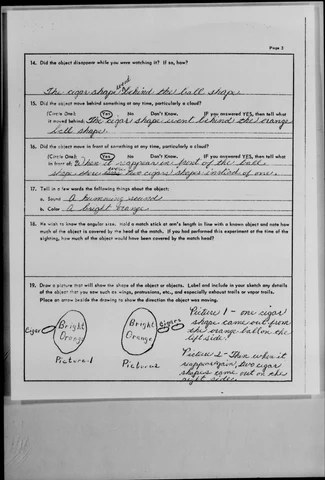 Page 3
14. Did the object disappear while you were watching it? If so, how?
The cigar shape went behind the ball shape.
15. Did the object move behind something at any time, particularly a cloud?
(Circle One): Yes No Don't Know. IF you answered YES, then tell what
it moved behind: The cigar shape went behind the orange
ball shape.
16. Did the object move in front of something at any time, particularly a cloud?
(Circle One): Yes No Don't Know. IF you answered YES, then tell what
in front of: When it reappears in front of the ball
shape there were two cigars shapes instead of one.
17. Tell in a few words the following things about the object:
a. Sound A humming sound
b. Color A bright orange
18. We wish to know the angular size. Hold a match stick at arm's length in line with a known object and note how
much of the object is covered by the head of the match. If you had performed this experiment at the time of the
sighting, how much of the object would have been covered by the match head?
19. Draw a picture that will show the shape of the object or objects. Label and include in your sketch any details
of the object that you saw such as wings, protrusions, etc., and especially exhaust trails or vapor trails.
Place an arrow beside the drawing to show the direction the object was moving.
Cigar
Bright
Orange
Picture 1
Bright
Orange
Cigars
Picture 2
Picture 1 - one cigar
shape came out from
the orange ball on the
left side.
Picture 2 - Then when it
reappears again, two cigar
shapes come out on the
right side.